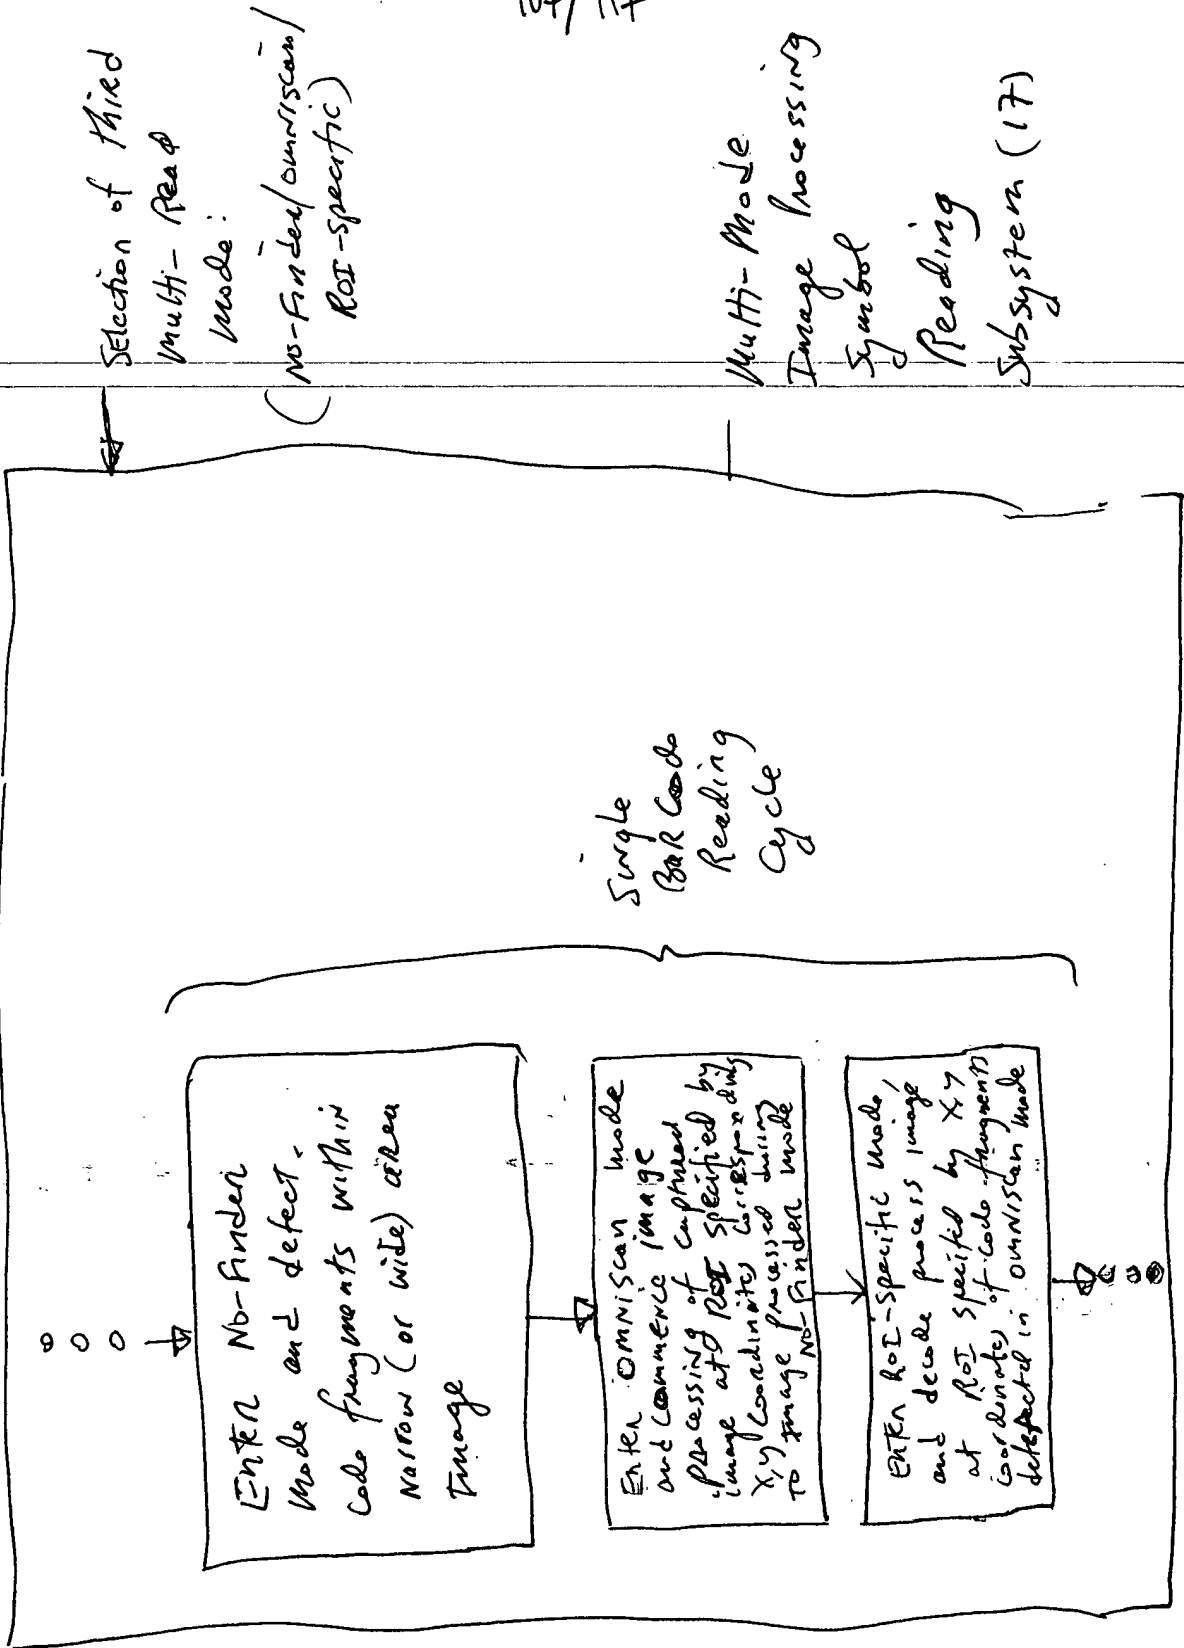 107/117
Selection of third
Multi-Read
Mode:
(No-Finder/omniscan/
ROI-specific)
Multi-Mode
Image Processing
Symbol
Reading
Subsystem (17)
Single
Bar Code
Reading
Cycle
Enter No-Finder
Mode and detect
Code fragments within
Narrow (or wide) area
Image
Enter OMNISCAN mode
and commence image
processing of captured
image at ROI specified by
X,Y coordinates corresponding
to image processed during
No-Finder mode
Enter ROI-Specific mode,
and decode process image
at ROI specified by X,Y
coordinates of code fragments
detected in OMNISCAN mode